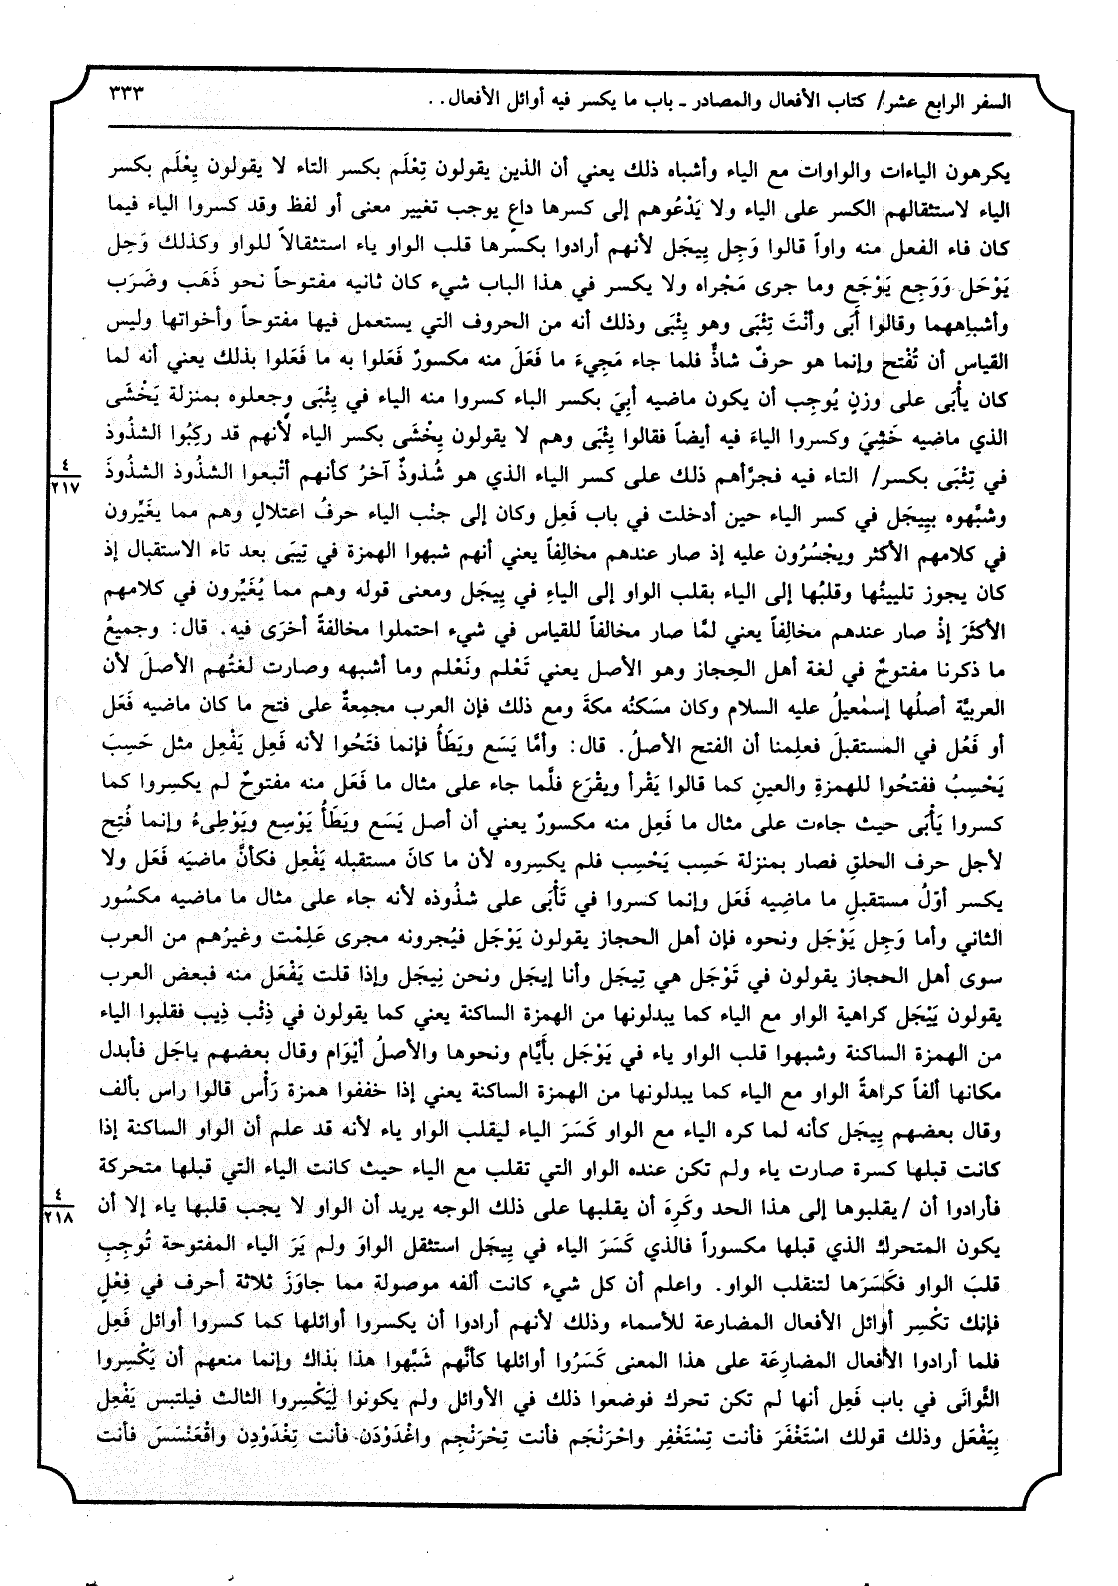 السفر الرابع عشر/ كتاب الأفعال والمصادر ـ باب ما يكسر فيه أوائل الأفعال. .
٣٣٣
يكرهون الياءات والواوات مع الياء وأشباه ذلك يعني أن الذين يقولون تِعْلَم بكسر التاء لا يقولون يِعْلَم بكسر
الياء لاستثقالهم الكسر على الياء ولا يَدْعُوهم إلى كسرها داعٍ يوجب تغيير معنى أو لفظ وقد كسروا الياء فيما
كان فاء الفعل منه واواً قالوا وَجِل يِيجَل لأنهم أرادوا بكسرها قلب الواو ياء استثقالاً للواو وكذلك وَجِل
يَوْجَل وَوَجِع يَوْجَع وما جرى مَجْراه ولا يكسر في هذا الباب شيء كان ثانيه مفتوحاً نحو ذَهَب وضَرَب
وأشباههما وقالوا أَبَى وأنْتَ تِئْبَى وهو يِئْبَى وذلك أنه من الحروف التي يستعمل فيها مفتوحاً وأخواتها وليس
القياس أن تُفْتح وإنما هو حرفٌ شاذٌّ فلما جاء مَجِيءَ ما فَعَلَ منه مكسورٌ فَعَلوا به ما فَعَلوا بذلك يعني أنه لما
كان يأْبَى على وزنٍ يُوجِب أن يكون ماضيه أبِيَ بكسر الباء كسروا منه الياء في يِئْبَى وجعلوه بمنزلة يَخْشَى
الذي ماضيه خَشِيَ وكسروا الياءَ فيه أيضاً فقالوا يِئْبَى وهم لا يقولون يِخْشَى بكسر الياء لأنهم قد ركِبُوا الشذُوذ
٤
٢١٧
في تِئْبَى بكسر/ التاء فيه فجرَّأهم ذلك على كسر الياء الذي هو شُذوذٌ آخرُ كأنهم أتْبعوا الشذُوذ الشذُوذَ
وشبَّهوه بيِيجَل في كسر الياء حين أدخلت في باب فَعِل وكان إلى جنْب الياء حرفُ اعتلالٍ وهم مما يغيِّرون
في كلامهم الأكثر ويجْسُرُون عليه إذ صار عندهم مخالِفاً يعني أنهم شبهوا الهمزة في تِيبَى بعد تاء الاستقبال إذ
كان يجوز تليينُها وقلبُها إلى الياء بقلب الواو إلى الياءِ في يِيجَل ومعنى قوله وهم مما يُغَيِّرون في كلامهم
الأكثَرَ إذْ صار عندهم مخالِفاً يعني لمَّا صار مخالفاً للقياس في شيء احتملوا مخالفةً أخرَى فيه. قال: وجميعُ
ما ذكرنا مفتوحٌ في لغة أهل الحِجاز وهو الأصل يعني تَعْلم ونَعْلم وما أشبهه وصارت لغتُهم الأصلَ لأن
العربيَّة أصلُها إسمٰعيلُ عليه السلام وكان مسَكنُه مكةَ ومع ذلك فإن العرب مجمِعةٌ على فتح ما كان ماضيه فَعَل
أو فَعُل في المستقبلَ فعلِمنا أن الفتح الأصلُ. قال: وأمَّا يَسَع ويَطَأُ فإنما فتَحُوا لأنه فَعِل يَفْعِل مثل حَسِبَ
يَحْسِبُ ففتحُوا للهمزةِ والعينِ كما قالوا يَقْرأ ويفْزَع فلَّما جاء على مثال ما فَعَل منه مفتوحٌ لم يكسِروا كما
كسروا يَأْبَى حيث جاءت على مثال ما فَعِل منه مكسورٌ يعني أن أصل يَسَع ويَطَأُ يَوْسِع ويَوْطِىءُ وإنما فُتِح
لأجل حرف الحلقِ فصار بمنزلة حَسِب يَحْسِب فلم يكسِروه لأن ما كانَ مستقبله يَفْعِل فكأنَّ ماضيَه فَعَل ولا
يكسر أوّلُ مستقبلِ ما ماضِيه فَعَل وإنما كسروا في تَأْبَى على شذُوذه لأنه جاء على مثال ما ماضيه مكسُور
الثاني وأما وَجِل يَوْجَل ونحوه فإن أهل الحجاز يقولون يَوْجَل فيُجرونه مجرى عَلِمْت وغيرُهم من العرب
سوى أهل الحجاز يقولون في تَوْجَل هي تِيجَل وأنا إيجَل ونحن نِيجَل وإذا قلت يَفْعَل منه فبعض العرب
يقولون يَيْجَل كراهية الواو مع الياء كما يبدلونها من الهمزة الساكنة يعني كما يقولون في ذِئْب ذِيب فقلبوا الياء
من الهمزة الساكنة وشبهوا قلب الواو ياء في يَوْجَل بأيَّام ونحوها والأصلُ أيْوَام وقال بعضهم ياجَل فأبدل
مكانها ألفاً كراهةً الواو مع الياء كما يبدلونها من الهمزة الساكنة يعني إذا خففوا همزة رَأْس قالوا راس بألف
وقال بعضهم يِيجَل كأنه لما كره الياء مع الواو كَسَرَ الياء ليقلب الواو ياء لأنه قد علم أن الواو الساكنة إذا
كانت قبلها كسرة صارت ياء ولم تكن عنده الواو التي تقلب مع الياء حيث كانت الياء التي قبلها متحركة
٤
٢١٨
فأرادوا أن /يقلبوها إلى هذا الحد وكَرِهَ أن يقلبها على ذلك الوجه يريد أن الواو لا يجب قلبها ياء إلا أن
يكون المتحرك الذي قبلها مكسوراً فالذي كَسَرَ الياء في يِيجَل استثقل الواوَ ولم يَرَ الياء المفتوحة تُوجِب
قلبَ الواو فكَسَرَها لتنقلب الواو. واعلم أن كل شيء كانت ألفه موصولة مما جاوَزَ ثلاثة أحرف في فِعْلٍ
فإنك تكْسِر أوائل الأفعال المضارعة للأسماء وذلك لأنهم أرادوا أن يكسروا أوائلها كما كسروا أوائل فَعِل
فلما أرادوا الأفعال المضارِعَة على هذا المعنى كَسَرُوا أوائلها كأنَّهم شَبَّهوا هذا بذاك وإنما منعهم أن يَكْسِروا
الثَّوانَى في باب فَعِل أنها لم تكن تحرك فوضعوا ذلك في الأوائل ولم يكونوا لِيَكْسِروا الثالث فيلتبس يَفْعِل
بِيَفْعَل وذلك قولك اسْتَغْفَرَ فأنت تِسْتَغْفِر واحْرَنْجَم فأنت تِحْرَنْجِم واغْدَوْدَن فأنت تِغْدَوْدِن واقْعَنْسَسَ فأنت